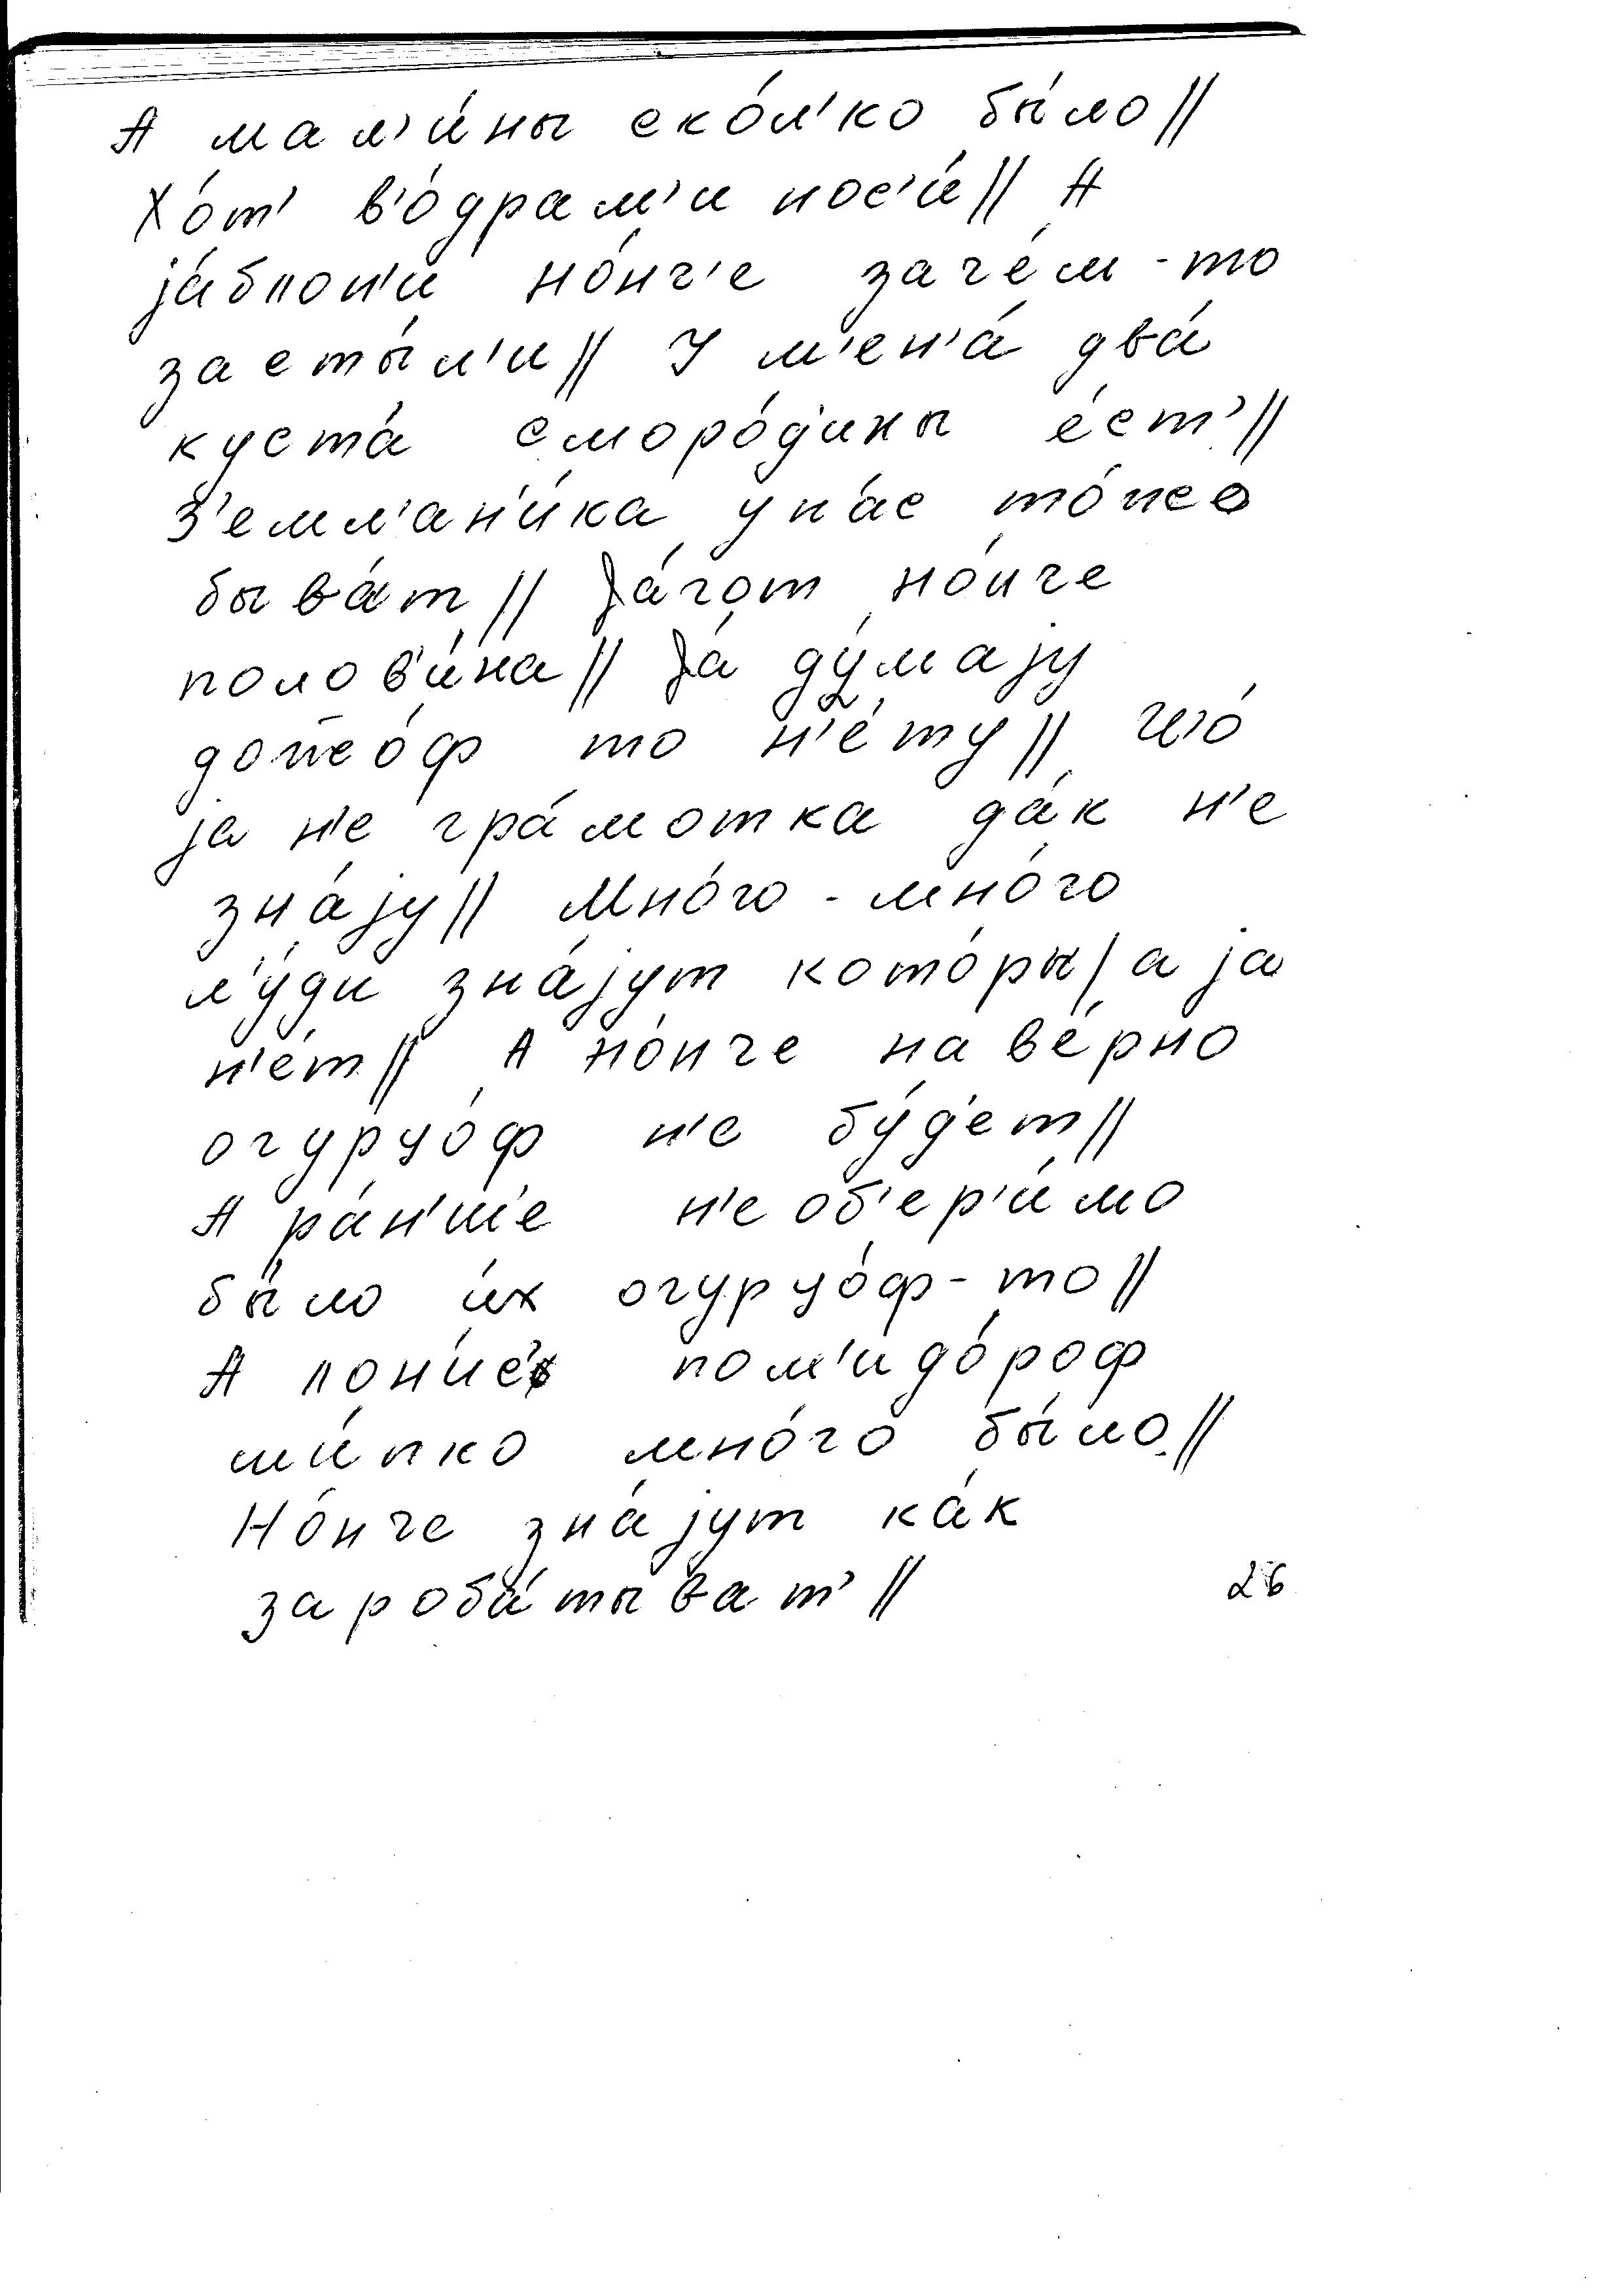 А мал'и́ны ско́л'ко бы́ло//
Хо́т' в'о́драм'и нос'и́// А
jа́блон'и но́нч'е заче́м-то
засты́л'и// У м'ен'а́ два́
куста́ сморо́д'ины е́ст'//
З'емл'ан'и́ка у на́с то́жо
быва́т// Jа́год но́нче
полов'и́на// Jа ду́маjу
дожжо́ф то н'е́ту// Чо́
jа н'е гра́мотка да́к н'е
зна́jу// Мно́го-мно́го
л'у́ди зна́jут кото́ры/а jа
н'е́т// А но́нче наве́рно
огурцо́ф н'е бу́д'ет//
А ра́н'ш'е н'еоб'ер'и́мо
бы́ло и́х огурцо́ф-то//
А пом'идо́роф
ши́пко мно́го бы́ло//
Но́нче зна́jут ка́к
зароба́тыват'//
26